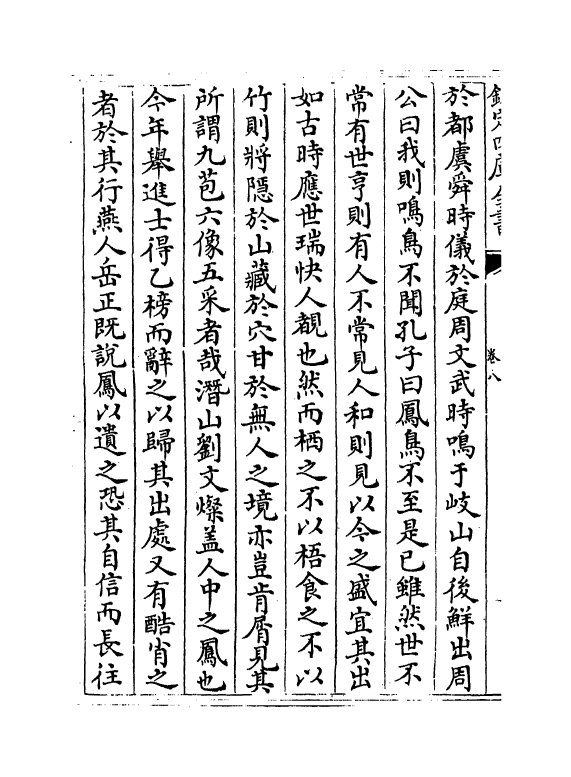 欽定四庫全書
卷八
於都虞舜時儀於庭周文武時鳴于岐山自後鮮出周
公曰我則鳴鳥不聞孔子曰鳳鳥不至是已雖然世不
常有世亨則有人不常見人和則見以今之盛宜其出
如古時應世瑞快人覩也然而栖之不以梧食之不以
竹則將隱於山藏於穴甘於無人之境亦豈肯屑見其
所謂九苞六像五采者哉潛山劉文燦盖人中之鳳也
今年舉進士得乙榜而辭之以歸其出處又有酷肖之
者於其行燕人岳正既說鳳以遺之恐其自信而長往